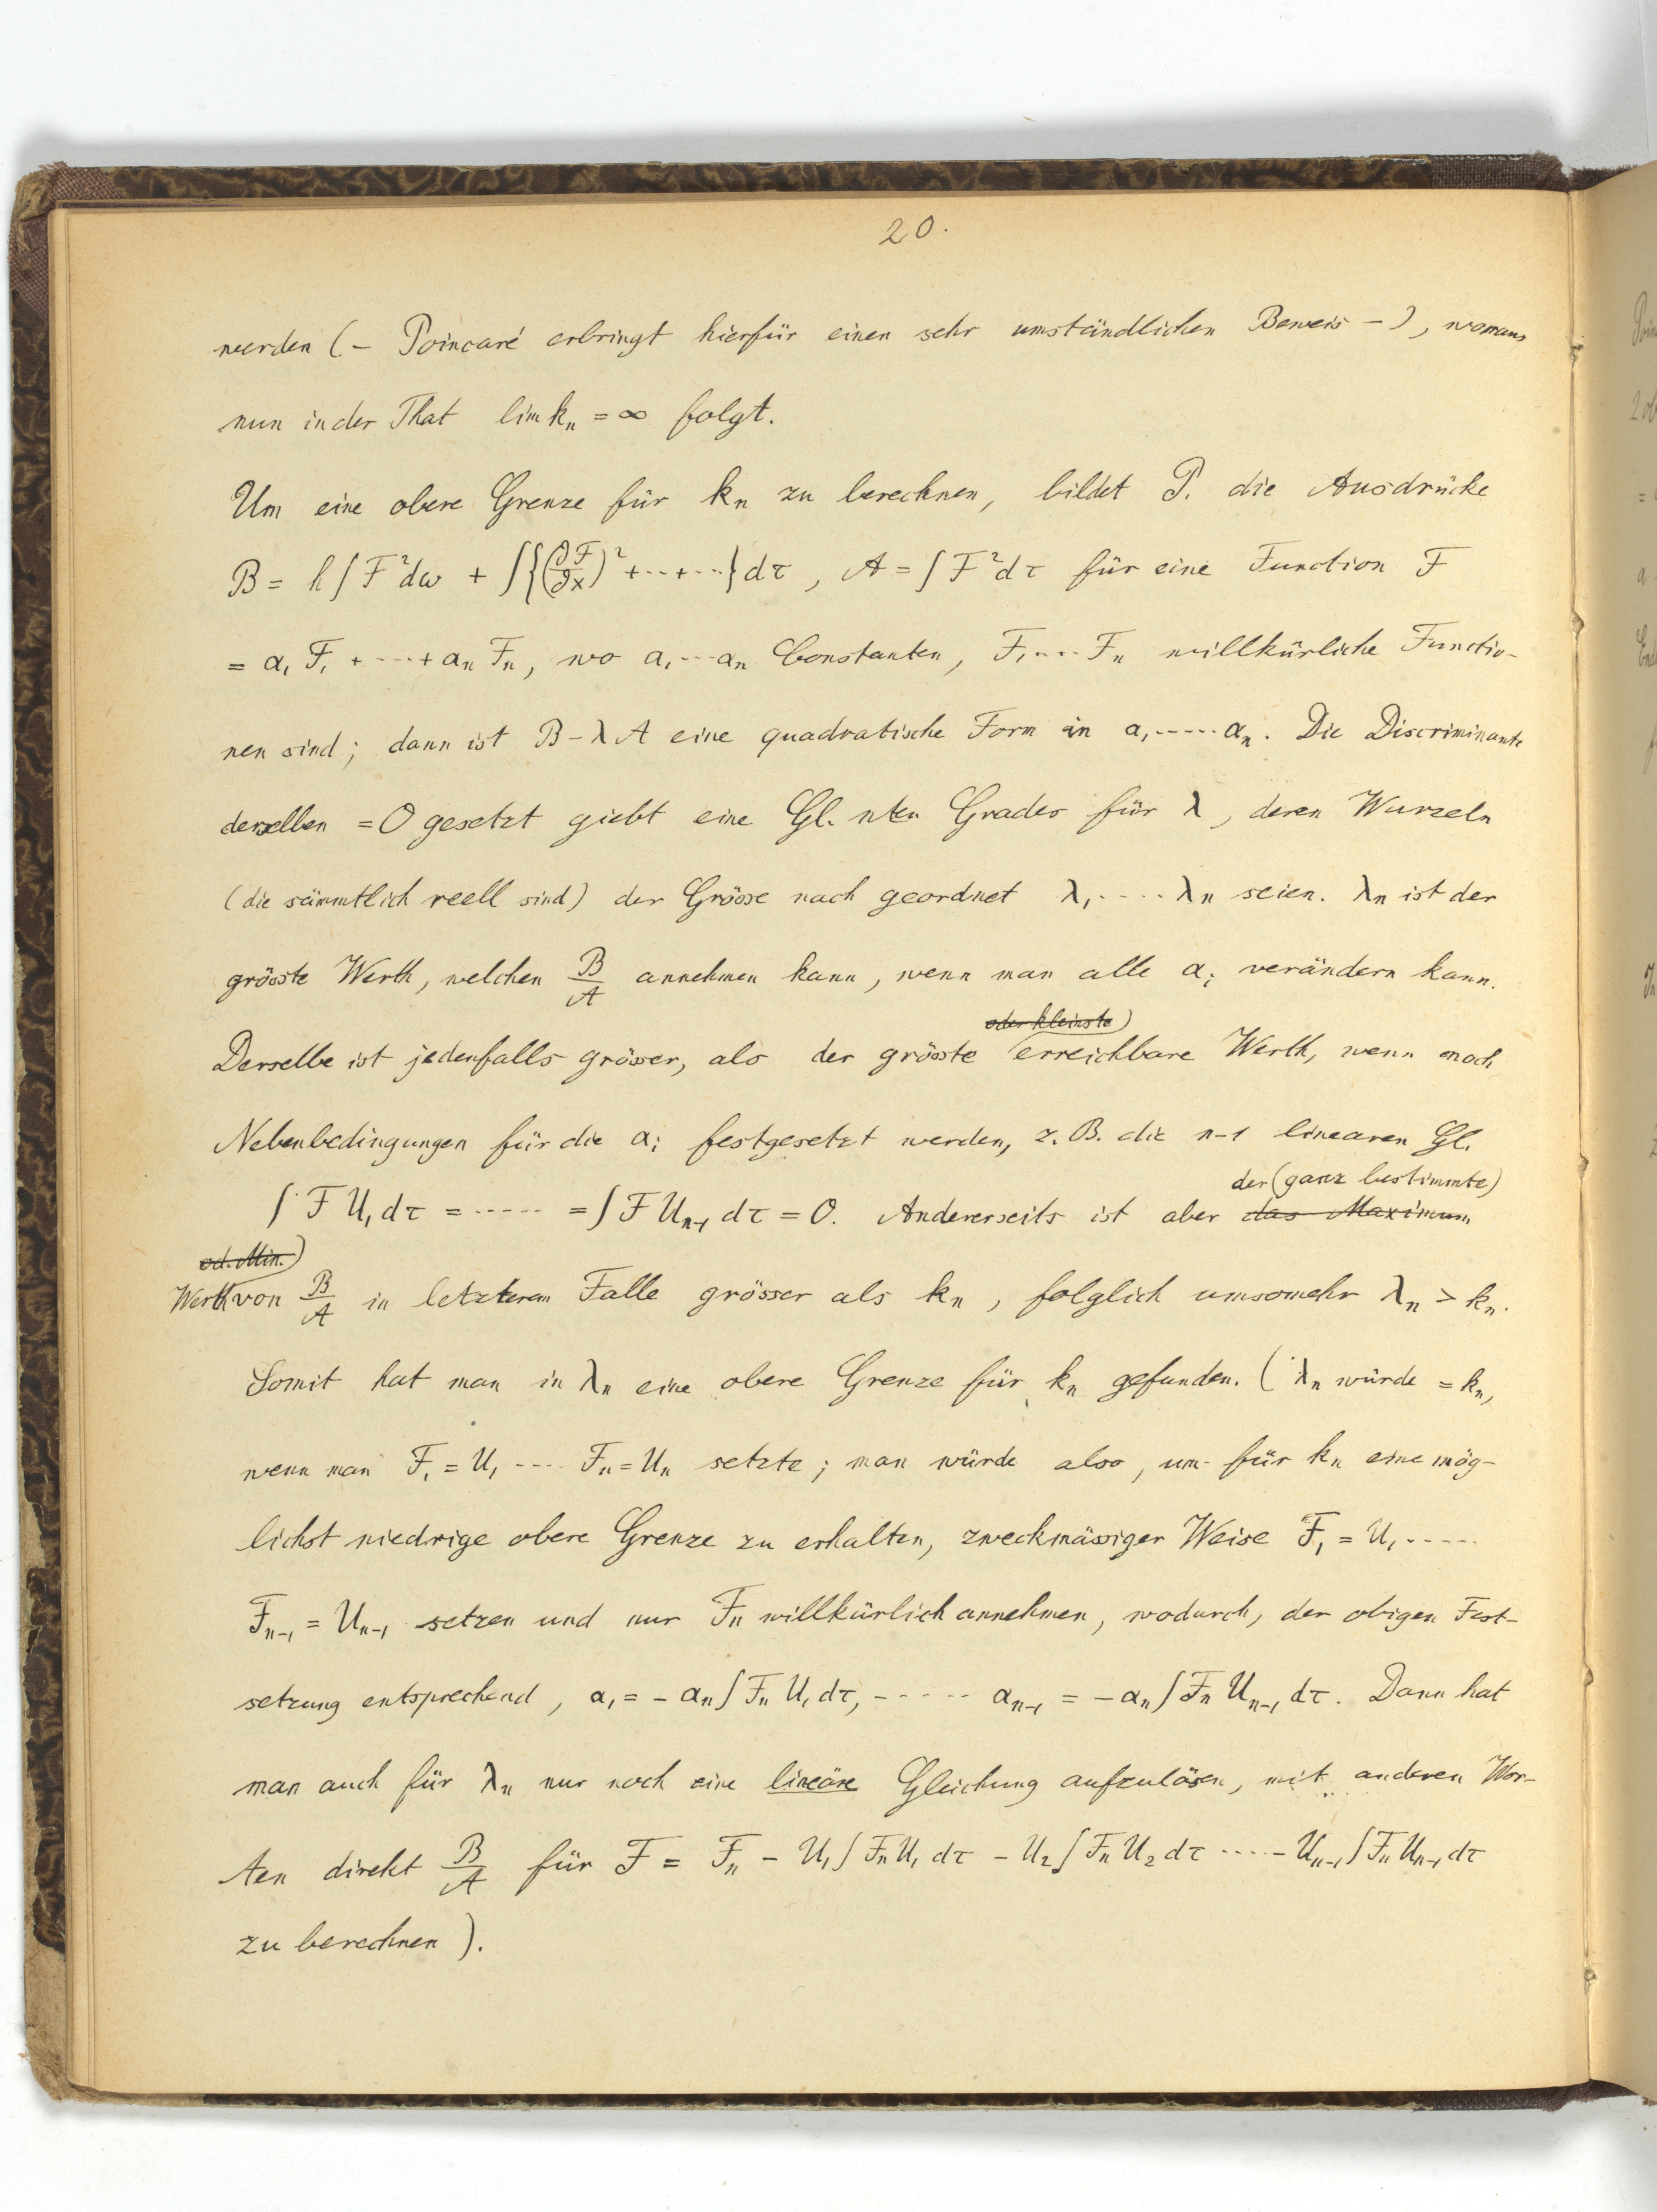 20.
werden (– Poincaré erbringt hierfür einen sehr umständlichen Beweis –), woraus
nun in der That lim kₙ = ∞ folgt.
Um eine obere Grenze für kₙ zu berechnen, bildet P. die Ausdrücke
B = h∫F²dω + ∫{(∂F/∂x)² + ·· + ···}dτ, A = ∫F²dτ für eine Function F
= α₁F₁ + ···· + αₙFₙ, wo α₁···αₙ Constanten, F₁···· Fₙ willkürliche Functio-
nen sind; dann ist B – λA eine quadratische Form in α₁······αₙ. Die Discriminante
derselben = 0 gesetzt giebt eine Gl. nten Grades für λ, deren Wurzeln
(die sämmtlich reell sind) der Grösse nach geordnet λ₁·····λₙ seien. λₙ ist der
grösste Werth, welchen B/A annehmen kann, wenn man alle αᵢ verändern kann.
oder kleinste)
Derselbe ist jedenfalls grösser, als der grösste erreichbare Werth, wenn noch
Nebenbedingungen für die αᵢ festgesetzt werden, z. B. die n-1 linearen Gl.
der (ganz bestimmte)
∫FU₁dτ = ····· = ∫FUₙ₋₁dτ = 0. Andererseits ist aber das Maximum
od. Min.)
Werth von B/A in letzterem Falle grösser als kₙ, folglich umsomehr λₙ > kₙ.
Somit hat man in λₙ eine obere Grenze für kₙ gefunden. (λₙ würde = kₙ,
wenn man F₁ = U₁ ···· Fₙ = Uₙ setzte; man würde also, um für kₙ eine mög-
lichst niedrige obere Grenze zu erhalten, zweckmässiger Weise F₁ = U₁ ·····
Fₙ₋₁ = Uₙ₋₁ setzen und nur Fₙ willkürlich annehmen, wodurch, der obigen Fest-
setzung entsprechend, α₁ = – αₙ∫FₙU₁dτ, ······ αₙ₋₁ = – αₙ∫FₙUₙ₋₁dτ. Dann hat
man auch für λₙ nur noch eine lineäre Gleichung aufzulösen, mit anderen Wor-
ten direkt B/A für F = Fₙ – U₁∫FₙU₁dτ – U₂∫FₙU₂dτ ····– Uₙ₋₁∫FₙUₙ₋₁dτ
zu berechnen).